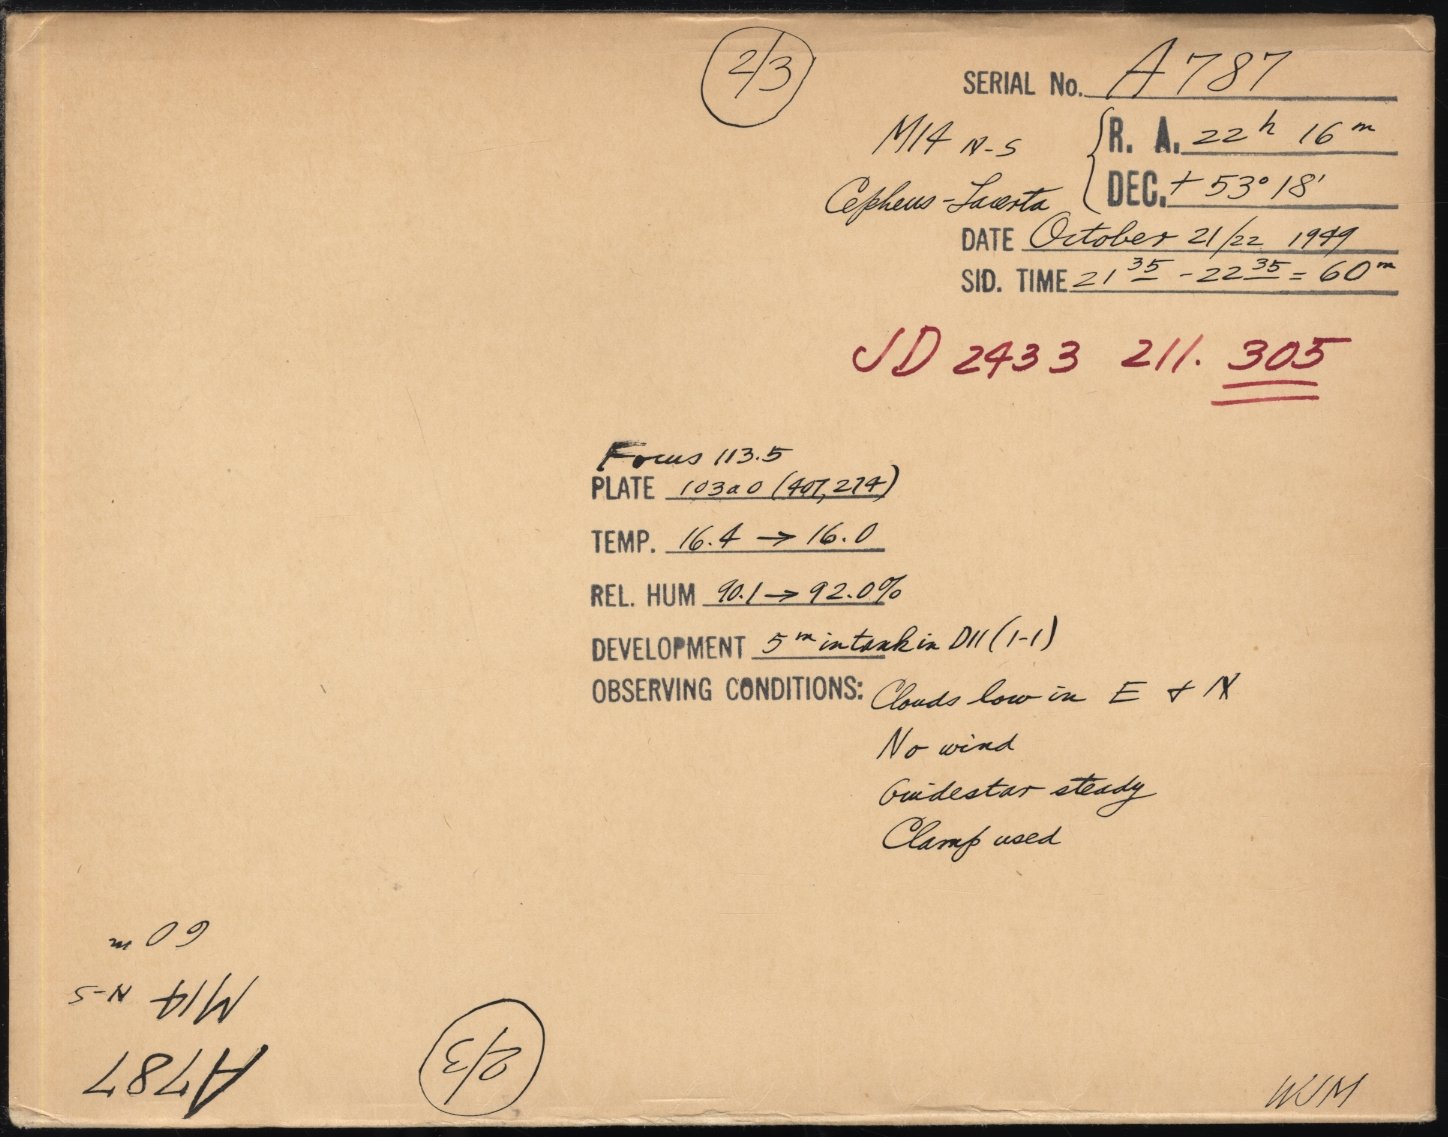 2/3
SERIAL No. A787
M14 N-S { R. A. 22h 16m
Cepheus-Lacerta DEC. +53° 18'
DATE October 21/22 1949
SID. TIME 21 35 - 22 35 = 60m
JD 2433 211.305
Focus 113.5
PLATE 103a0 (407,274)
TEMP. 16.4 → 16.0
REL. HUM 90.1 → 92.0%
DEVELOPMENT 5m in tank in D11 (1-1)
OBSERVING CONDITIONS: Clouds low in E + N
No wind
Guidestar steady
Clamp used
60m
M14 N-S
A787
2/3
WJM